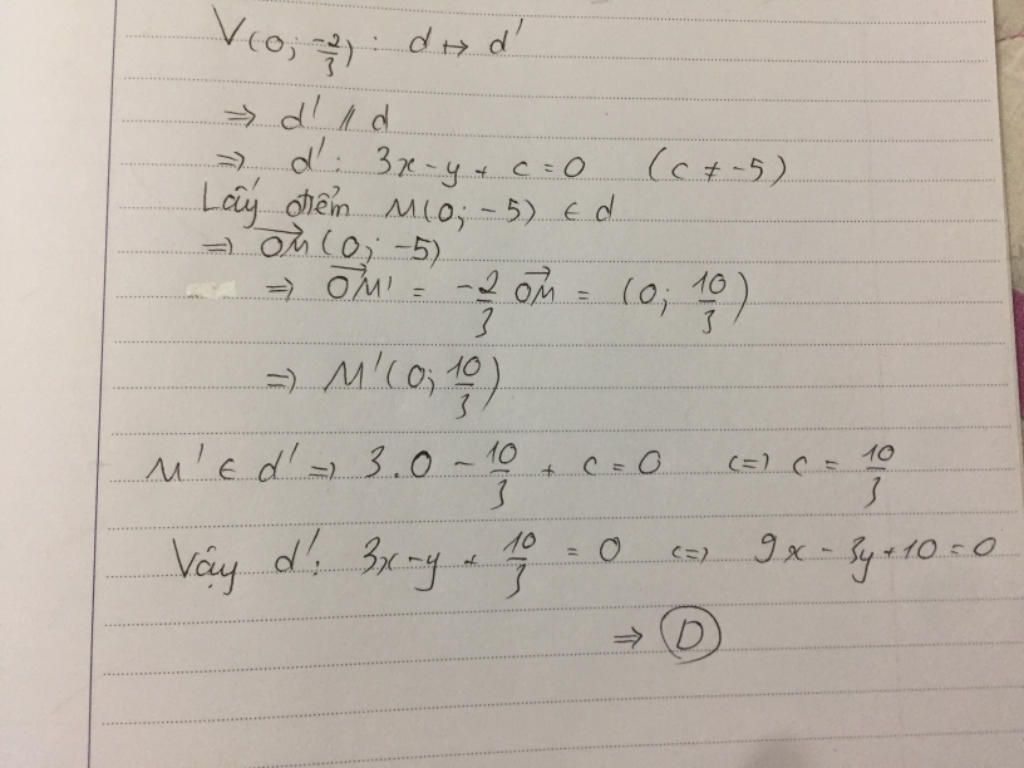 V(O; -2/3) : d ↦ d'
⇒ d' // d
⇒ d': 3x - y + c = 0 (c ≠ -5)
Lấy điểm M(0; -5) ∈ d
⇒ OM⃗ (0; -5)
⇒ OM'⃗ = -2/3 OM⃗ = (0; 10/3)
⇒ M'(0; 10/3)
M' ∈ d' ⇒ 3.0 - 10/3 + c = 0 <=> c = 10/3
Vậy d': 3x - y + 10/3 = 0 <=> 9x - 3y + 10 = 0
⇒ D